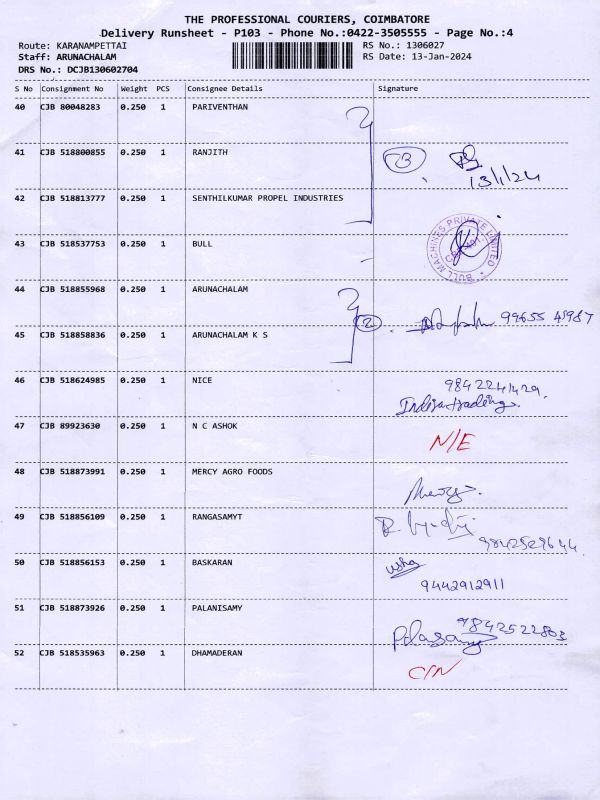 THE PROFESSIONAL COURIERS, COIMBATORE
Delivery Runsheet - P103 - Phone No.:0422-3505555 - Page No.:4
Route: KARANAMPETTAI RS No.: 1306027
Staff: ARUNACHALAM RS Date: 13-Jan-2024
DRS No.: DCJB130602704
S No Consignment No Weight PCS Consignee Details Signature
40 CJB 80048283 0.250 1 PARIVENTHAN
41 CJB 518800855 0.250 1 RANJITH 3
13/1/24
42 CJB 518813777 0.250 1 SENTHILKUMAR PROPEL INDUSTRIES
43 CJB 518537753 0.250 1 BULL BULL MACHINES PRIVATE LIMITED
44 CJB 518855968 0.250 1 ARUNACHALAM
2 99655 45987
45 CJB 518858836 0.250 1 ARUNACHALAM K S
46 CJB 518624985 0.250 1 NICE 9842241429.
Indira trading
47 CJB 89923630 0.250 1 N C ASHOK N/E
48 CJB 518873991 0.250 1 MERCY AGRO FOODS Mercy
49 CJB 518856109 0.250 1 RANGASAMYT
9842529644
50 CJB 518856153 0.250 1 BASKARAN usha
9442912911
51 CJB 518873926 0.250 1 PALANISAMY 9842522803
52 CJB 518535963 0.250 1 DHAMADERAN C/N